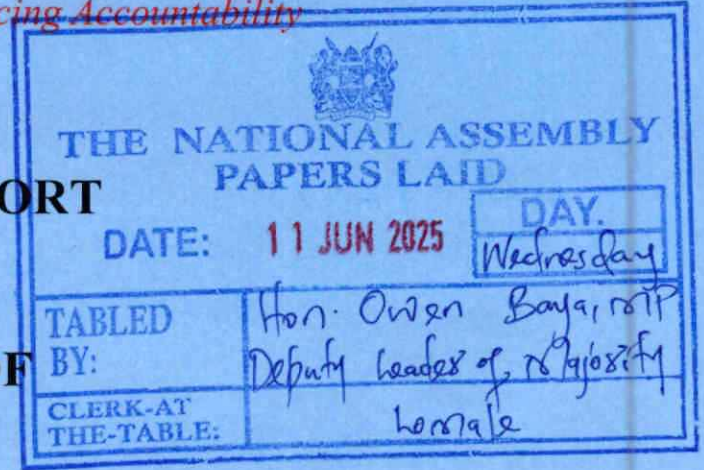 cing Accountability
THE NATIONAL ASSEMBLY
PAPERS LAID
ORT
DATE: 11 JUN 2025
DAY.
Wednesday
TABLED BY:
Hon. Owen Baya, MP
Deputy Leader of Majority
F
CLERK-AT THE-TABLE: